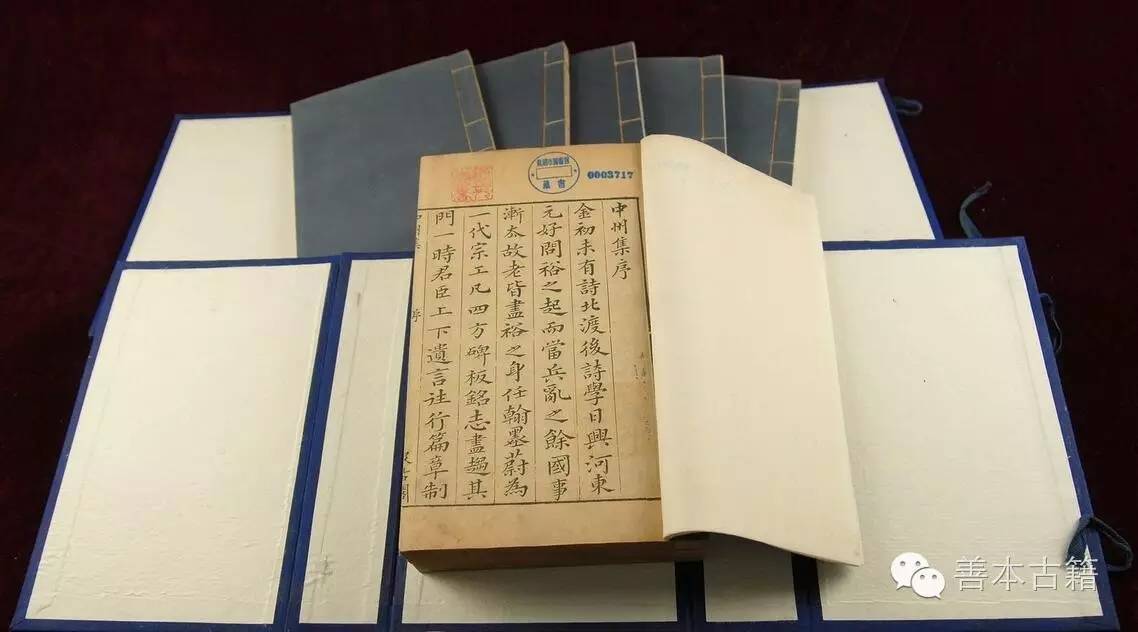 中州集序
金初未有詩北渡後詩學日興河東
元好問裕之起而當兵亂之餘國事
漸夳故老皆盡裕之身任翰墨蔚為
一代宗工凡四方碑板銘志盡趨其
門一時君臣上下遺言往行篇章制
中州集
序
汲古閣
藏書
0003717
善本古籍